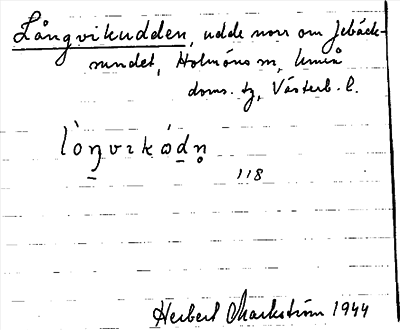 Långvikudden, udde norr om Jebäck-
sundet, Holmöns sn, Umeå
doms. tg, Västerb. l.
lòŋvıkòdn̥
118
Herbert Markström 1944